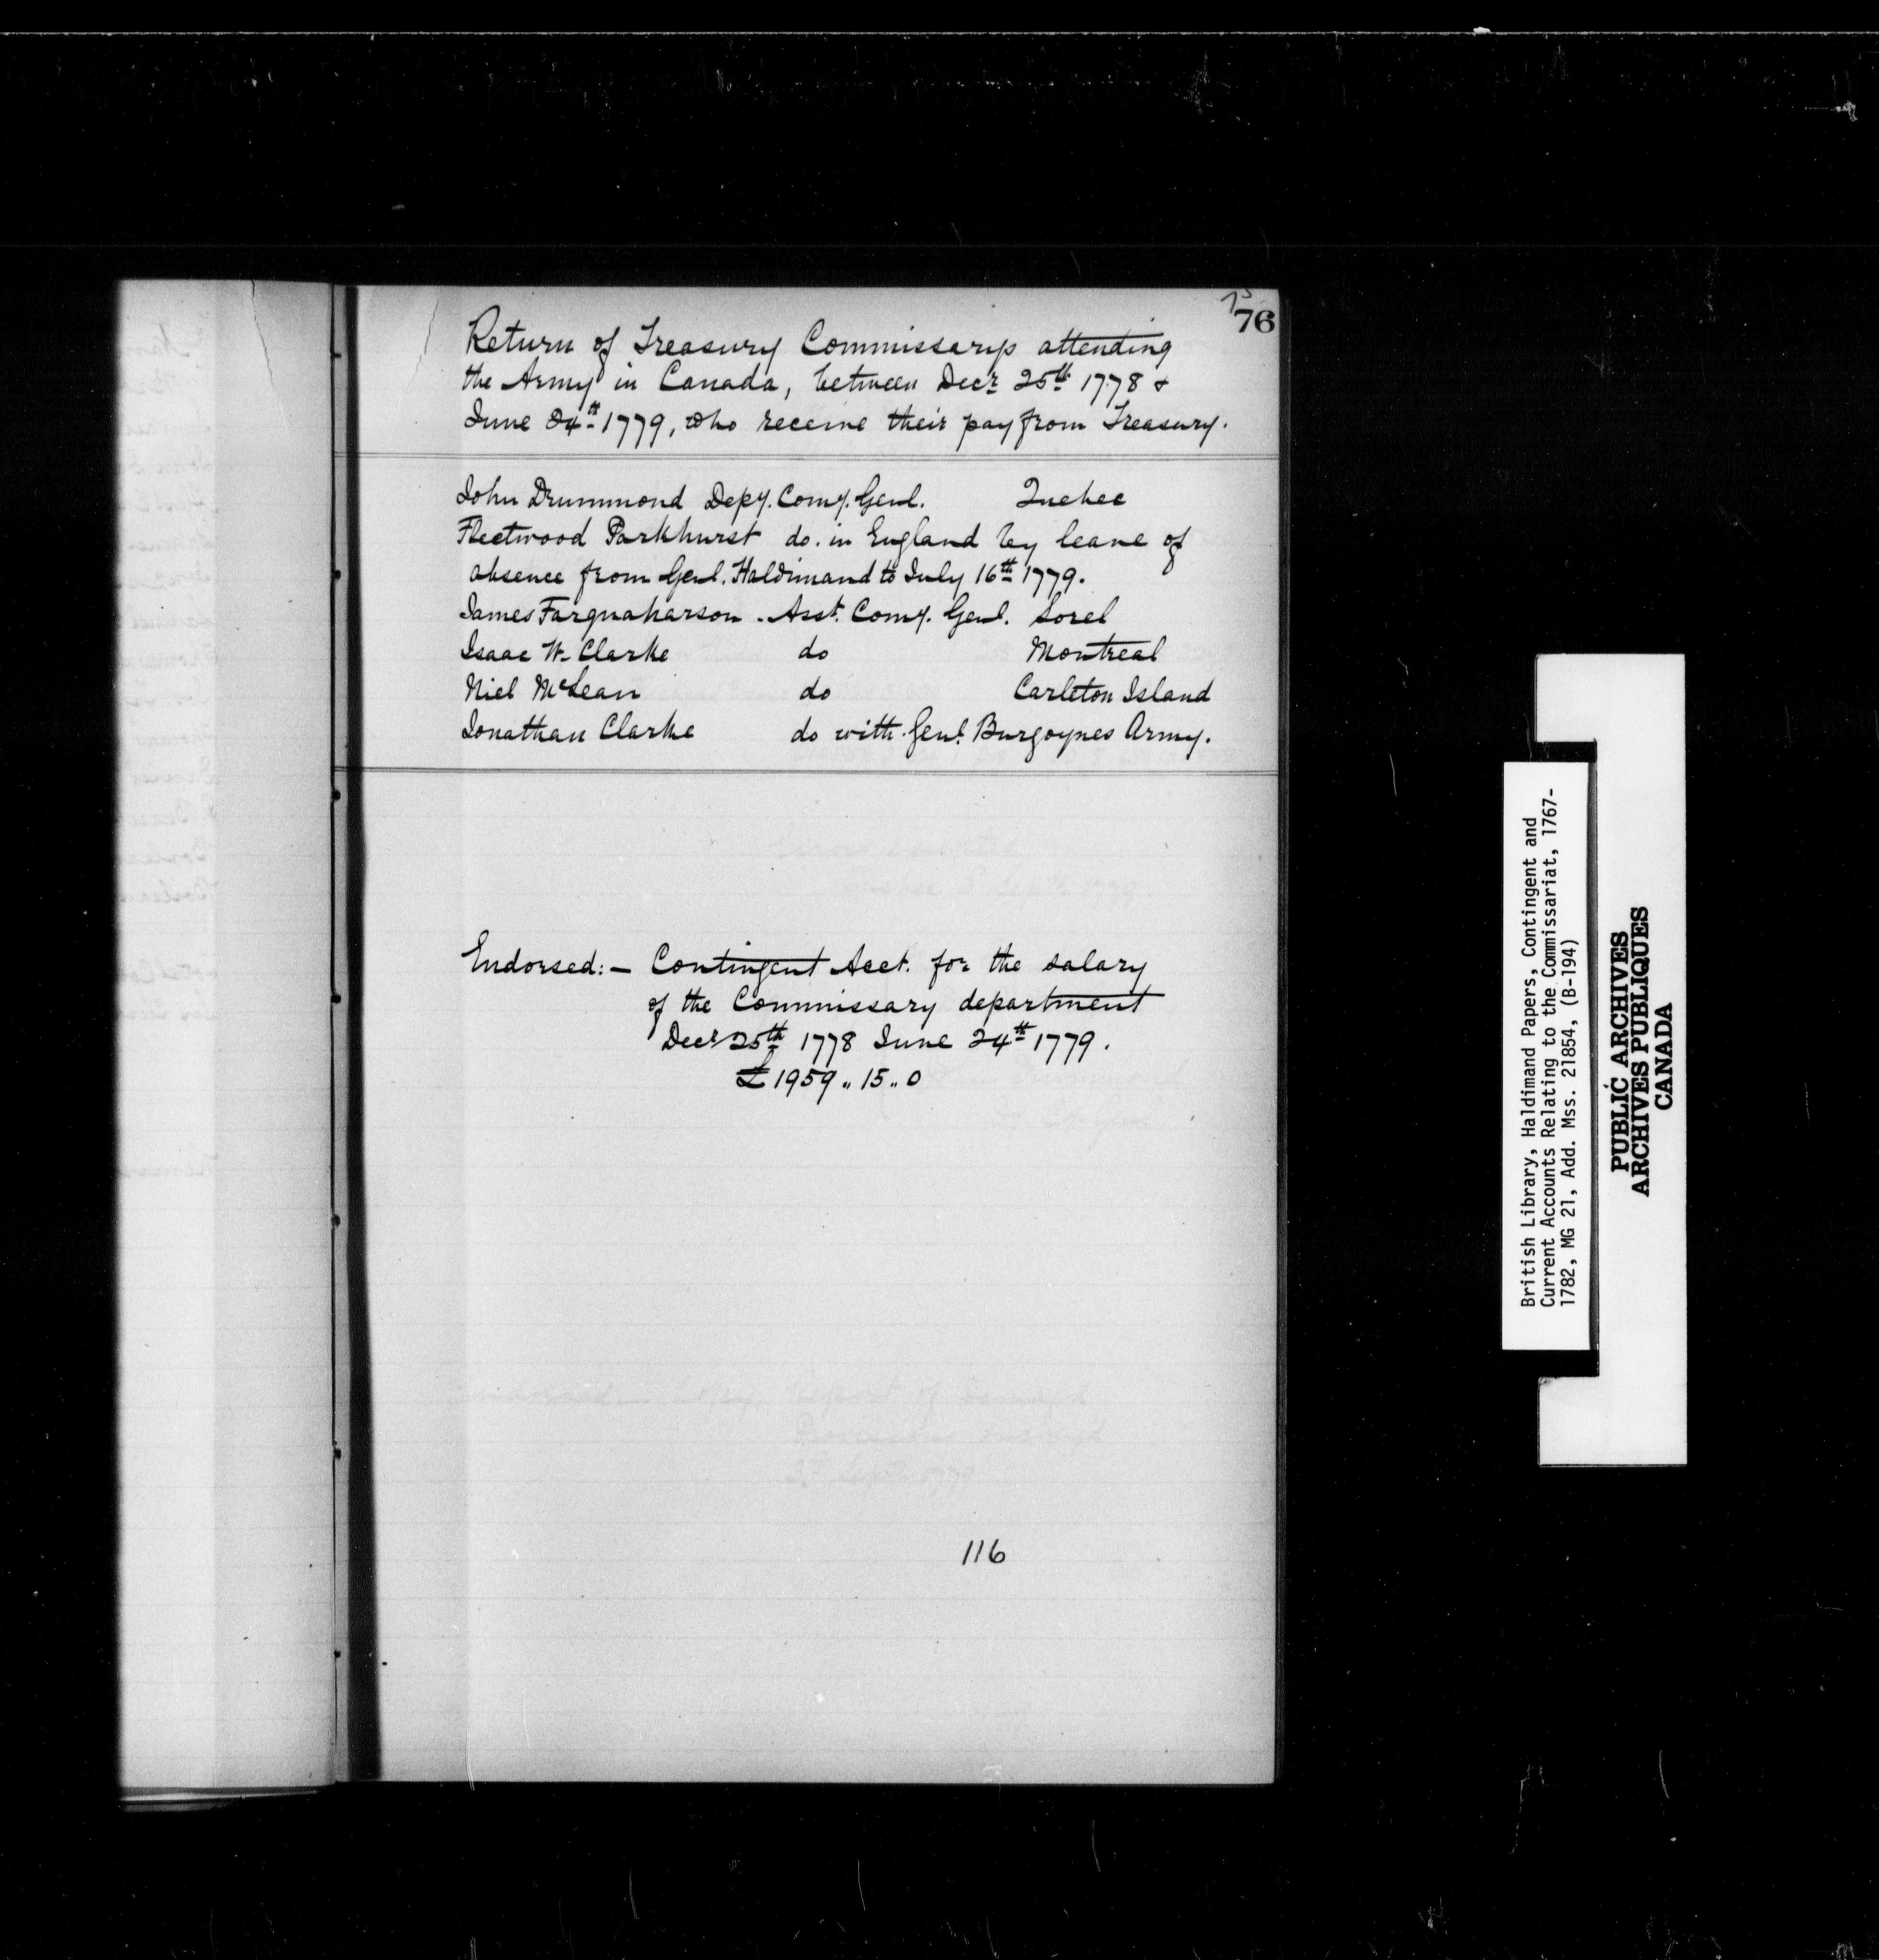 75
76
Return of Treasury Commissarys attending
the Army in Canada, between Decr 25th 1778 &
June 24th 1779, who receive their pay from Treasury.
John Drummond Depy. Comy. Genl. Quebec
Fleetwood Parkhurst do. in England by leave of
absence from Genl. Haldimand to July 16th 1779.
James Farquaharson - Asst. Comy. Genl. Sorel
Isaac W. Clarke do Montreal
Niel McLean do Carleton Island
Jonathan Clarke do with Genl. Burgoynes Army.
Endorsed:— Contingent Acct. for the salary
of the Commissary department
Decr 25th 1778 June 24th 1779.
£1959 " 15 " 0
116
British Library, Haldimand Papers, Contingent and
Current Accounts Relating to the Commissariat, 1767-
1782, MG 21, Add. Mss. 21854, (B-194)
PUBLIC ARCHIVES
ARCHIVES PUBLIQUES
CANADA